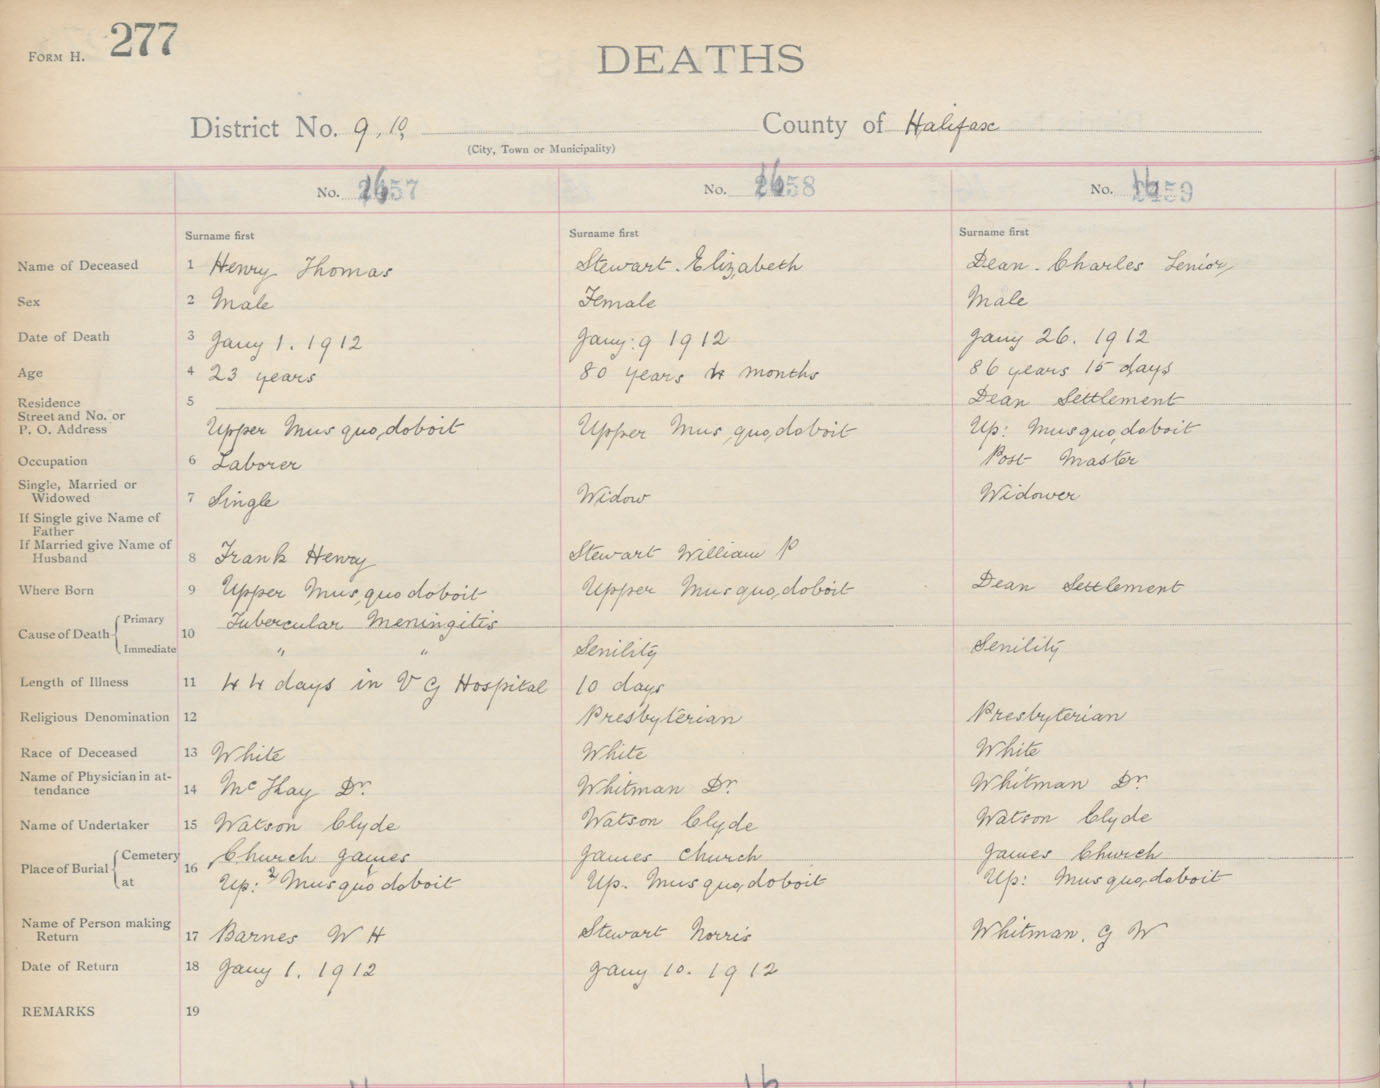 FORM H. 277
DEATHS
District No. 9, 10, County of Halifax
(City, Town or Municipality)
No. 57 No. 58 No. 59
Surname first Surname first Surname first
Name of Deceased 1 Henry Thomas Stewart. Elizabeth Dean. Charles Senior
Sex 2 Male Female Male
Date of Death 3 Jany 1. 1912 Jany: 9 1912 Jany 26. 1912
Age 4 23 years 80 years 4 months 86 years 15 days
Residence 5 Dean Settlement
Street and No. or
P. O. Address Upper Musquodoboit Upper Musquodoboit Up: Musquodoboit
Occupation 6 Laborer Post Master
Single, Married or
Widowed 7 Single Widow Widower
If Single give Name of
Father
If Married give Name of
Husband 8 Frank Henry Stewart William P
Where Born 9 Upper Musquodoboit Upper Musquodoboit Dean Settlement
Cause of Death Primary 10 Tubercular Meningitis
Immediate " " Senility Senility
Length of Illness 11 44 days in V G Hospital 10 days
Religious Denomination 12 Presbyterian Presbyterian
Race of Deceased 13 White White White
Name of Physician in at-
tendance 14 Dr. Whitman Dr. Whitman Dr.
Name of Undertaker 15 Watson Clyde Watson Clyde Watson Clyde
Place of Burial Cemetery 16 Church James James Church James Church
at Up: Musquodoboit Up. Musquodoboit Up: Musquodoboit
Name of Person making
Return 17 Barnes W H Stewart Norris Whitman. G W
Date of Return 18 Jany 1. 1912 Jany 10. 1912
REMARKS 19